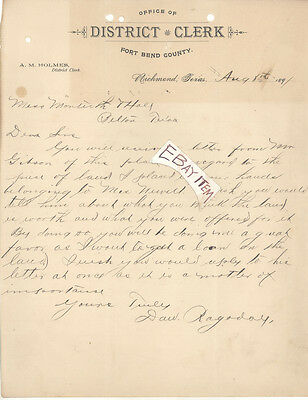 OFFICE OF
DISTRICT CLERK
FORT BEND COUNTY.
A. M. HOLMES,
District Clerk.
Richmond, Texas, Aug 189
Mess & Hall
Texas
Dear Sirs
You will receive a letter from Mr
Gibson of this place in regard to the
piece of land I placed in your hands
belonging to Miss I wish you would
tell him about what you think the land
is worth and what you were offered for it
By doing so, you will be doing me a great
favor as I want to get a loan on the
land, I wish you would reply to his
letter at once as it is a matter of
importance
Yours Truly
Ragsdale
EBAY ITEM